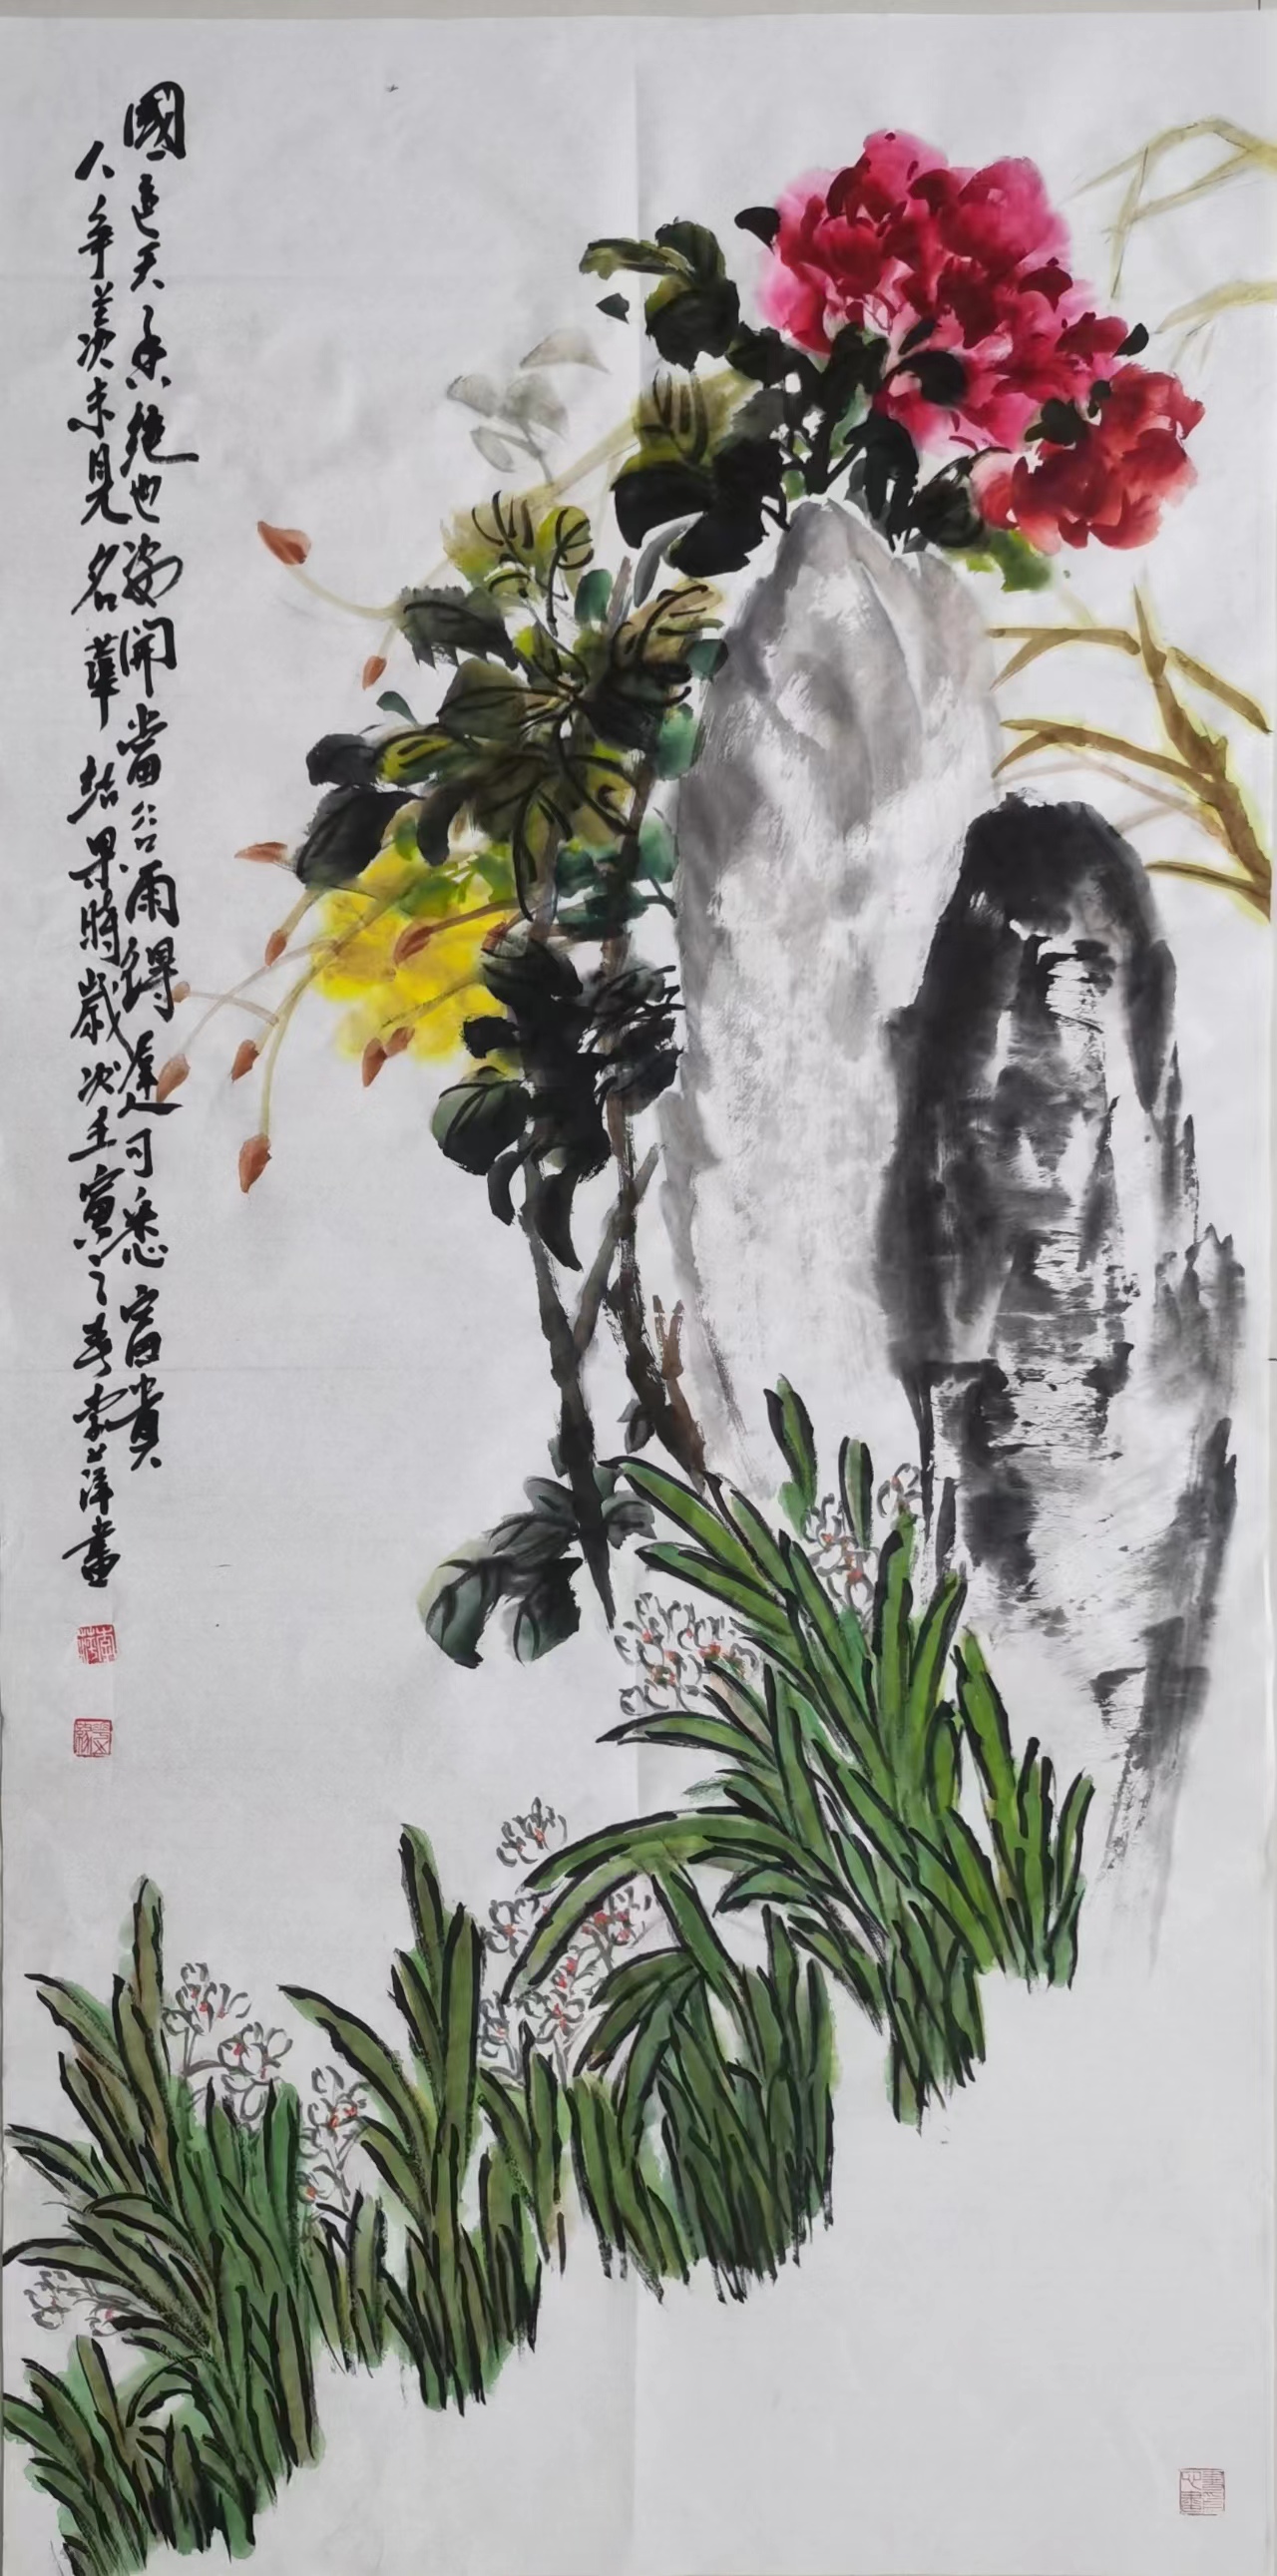 國色天香絕世姿開當谷雨得遲可悉富貴
人爭羨次未見名華結果時歲次壬寅之春索萍畫